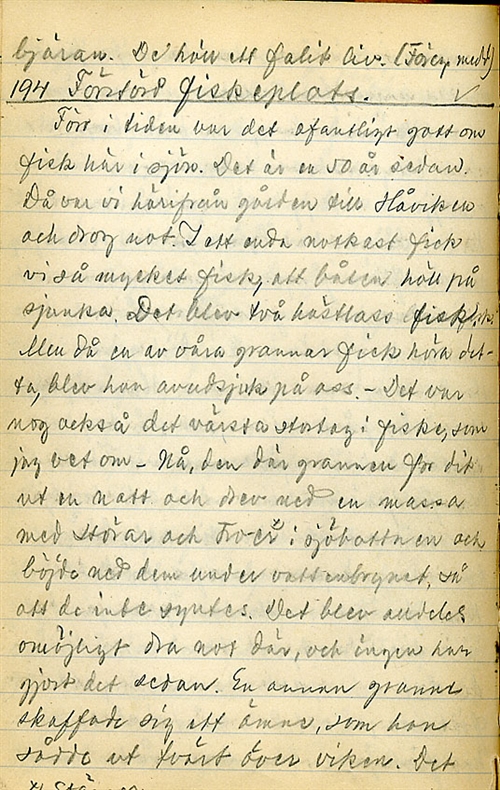 björan. De höll ett falit liv. (Förey. medd.)
194 Förstörd fiskeplats.
Förr i tiden var det ofantligt gott om
fisk här i sjön. Det är en 50 år sedan.
Då var vi härifrån gården till Håviken
och drog not. I ett enda notkast fick
vi så mycket fisk, att båten höll på
sjunka. Det blev två hästlass fisk.
Men då en av våra grannar fick höra det-
ta, blev han avundsjuk på oss. – Det var
nog också det värsta stortag i fiske, som
jag vet om – Nå, den där grannen for dit
ut en natt och drev ned en massa
med störar och troer x) i sjöbottnen och
böjde ned dem under vattenbrynet, så
att de inte syntes. Det blev alldeles
omöjligt dra not där, och ingen har
gjort det sedan. En annan granne
skaffade sig ett ämne, som han
sådde ut tvärt över viken. Det